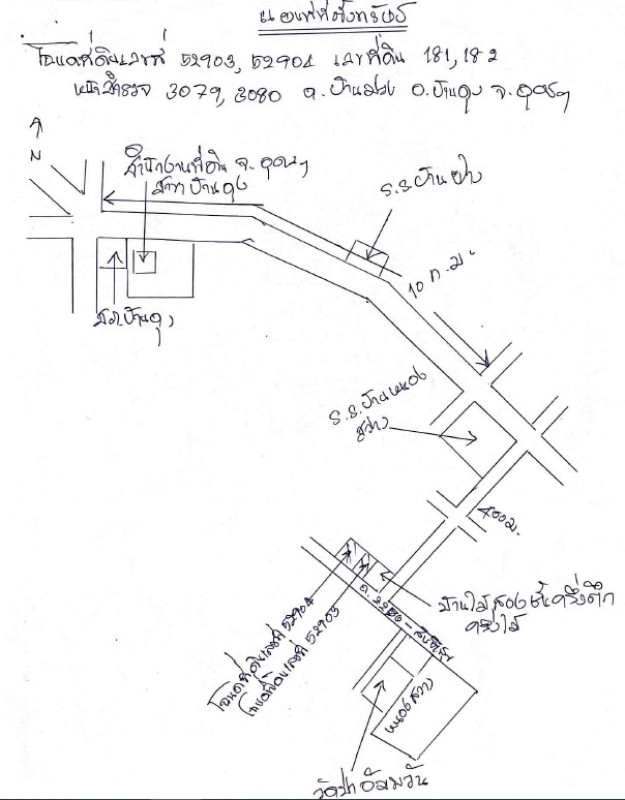 แผนที่ตั้งทรัพย์
โฉนดที่ดินเลขที่ 52903, 52904 เลขที่ดิน 181, 182
หน้าสำรวจ 3079, 3080 ต.บ้านม่วง อ.บ้านดุง จ.อุดรฯ
N
สำนักงานที่ดิน จ.อุดรฯ
สาขาบ้านดุง
ร.ร.บ้านฝาง
10 ก.ม.
สภ.บ้านดุง
ร.ร.บ้านหนอง
สว่าง
400 ม.
บ้านไม้สองชั้นครึ่งตึก
ครึ่งไม้
โฉนดที่ดินเลขที่ 52904
โฉนดที่ดินเลขที่ 52903
หนองสว่าง
วัดป่าอัมพวัน